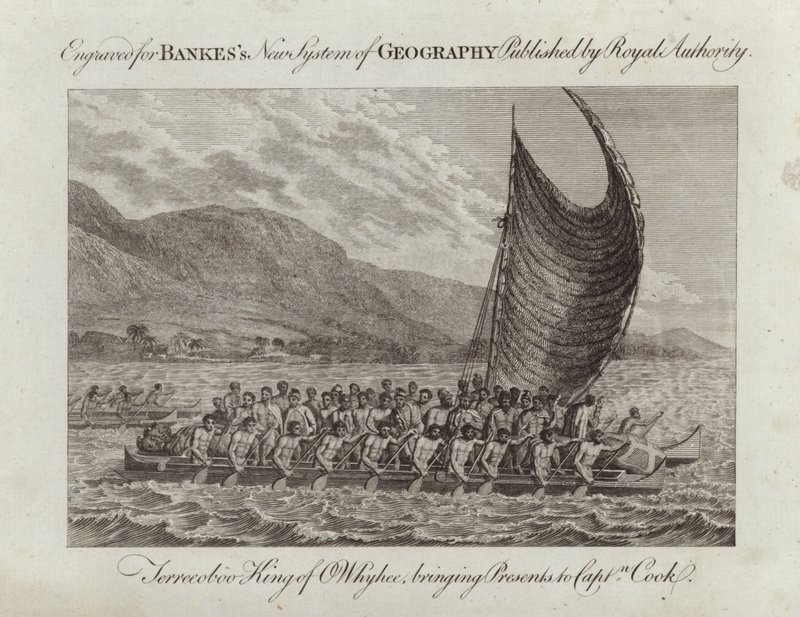 Engraved for BANKES's New System of GEOGRAPHY Published by Royal Authority.
Terreeoboo King of O'Whyhee, bringing Presents to Captn. Cook.